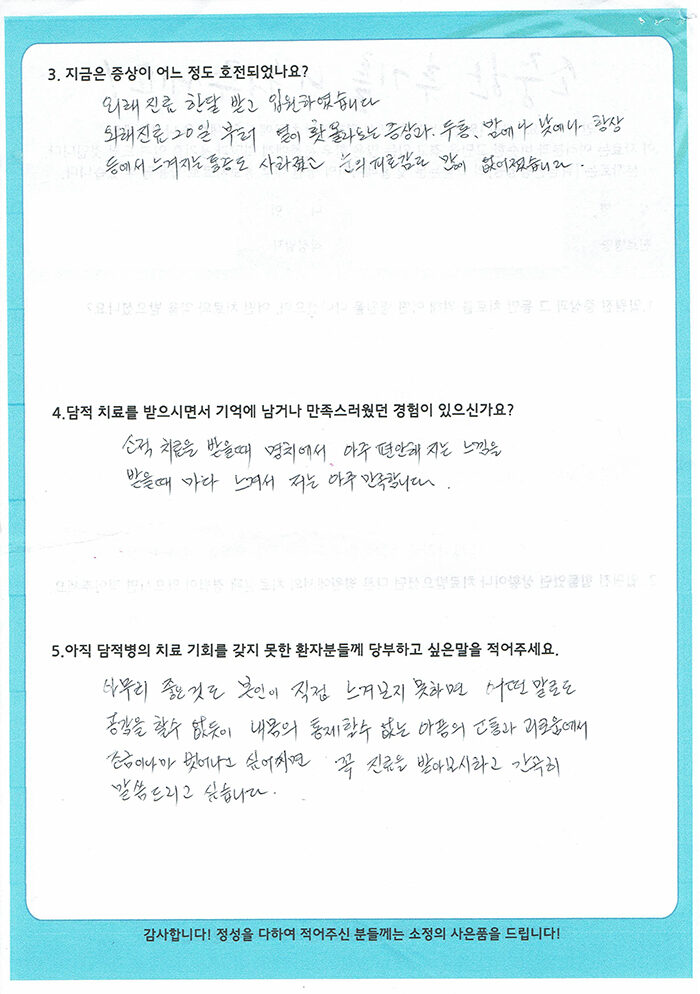 3. 지금은 증상이 어느 정도 호전되었나요?
외래 진료 한달 받고 입원하였습니다
외래진료 20일 부터 열이 확 올라오는 증상과 두통, 밤에나 낮에나 항상
등에서 느껴지는 통증도 사라졌고 눈의 피로감도 많이 없어졌습니다.
4.담적 치료를 받으시면서 기억에 남거나 만족스러웠던 경험이 있으신가요?
소적 치료을 받을때 명치에서 아주 편안해 지는 느낌을
받을때 마다 느껴서 저는 아주 만족합니다.
5.아직 담적병의 치료 기회를 갖지 못한 환자분들께 당부하고 싶은말을 적어주세요.
아무리 좋은것도 본인이 직접 느껴보지 못하면 어떤 말로도
생각을 할수 없듯이 내몸의 통제할수 없는 아픔의 고통과 괴로움에서
조금이나마 벗어나고 싶어지면 꼭 진료을 받아보시라고 간곡히
말씀드리고 싶습니다.
감사합니다! 정성을 다하여 적어주신 분들께는 소정의 사은품을 드립니다!